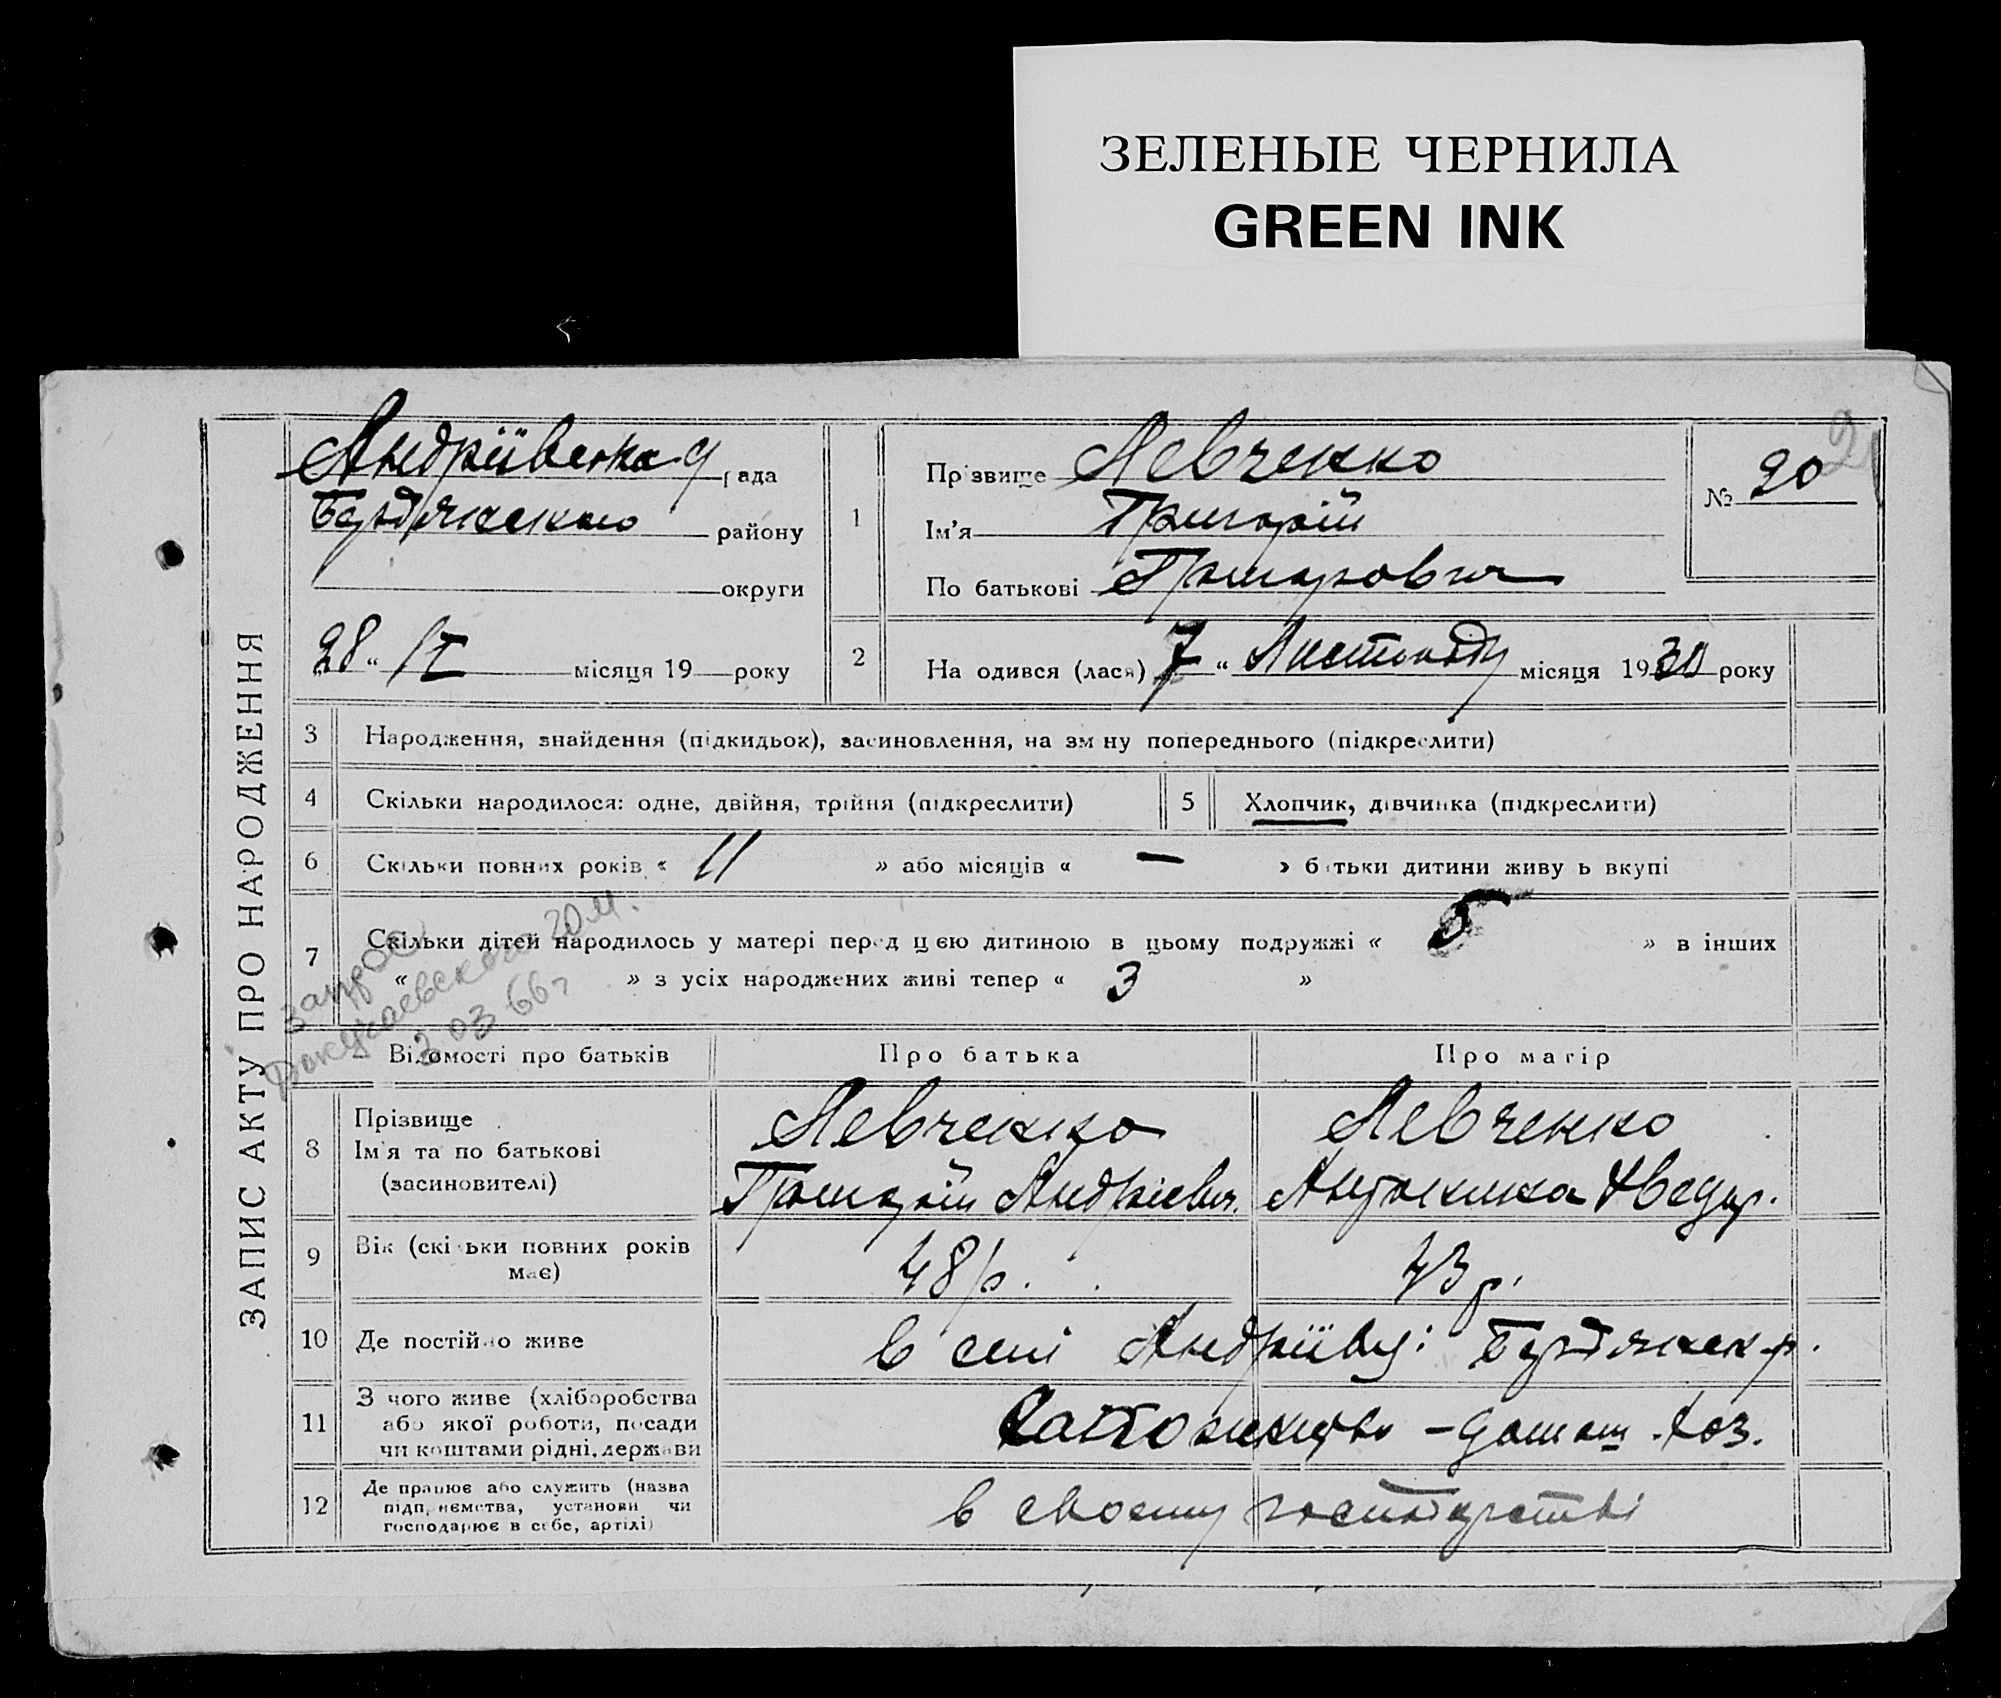 ЗЕЛЕНЫЕ ЧЕРНИЛА
GREEN INK
ЗАПИС АКТУ ПРО НАРОДЖЕННЯ
Андріївська рада
Бердянського району
округи
28 " місяця 19 року
1 Прізвище Левченко
Ім'я Григорій
По батькові Григорович
№ 20
2 На одився (лася) 7 " Листопаду місяця 1930 року
3 Народження, знайдення (підкидьок), засиновлення, на зм ну попереднього (підкреслити)
4 Скільки народилося: одне, двійня, трійня (підкреслити)
5 Хлопчик, дівчинка (підкреслити)
6 Скільки повних років « 11 » або місяців « — » батьки дитини живу ь вкупі
7 Скільки дітей народилось у матері перед цією дитиною в цьому подружжі « 5 » в інших
« » з усіх народжених живі тепер « 3 »
запрос
Докучаевского
3 03 66 г
Відомості про батьків
Про батька
Про матір
8 Прізвище
Ім'я та по батькові
(засиновителі)
Левченко
Григорій Андрієвич.
Левченко
9 Вік (скі ьки повних років
має)
48 р.
43 р.
10 Де постійно живе
в селі Андріївці Бердянськ р.
11 З чого живе (хліборобства
або якої роботи, посади
чи коштами рідні, держави
домаш. хоз.
12 Де працює або служить (назва
підприємства, установи чи
господарює в себе, артілі)
в своєму господарстві